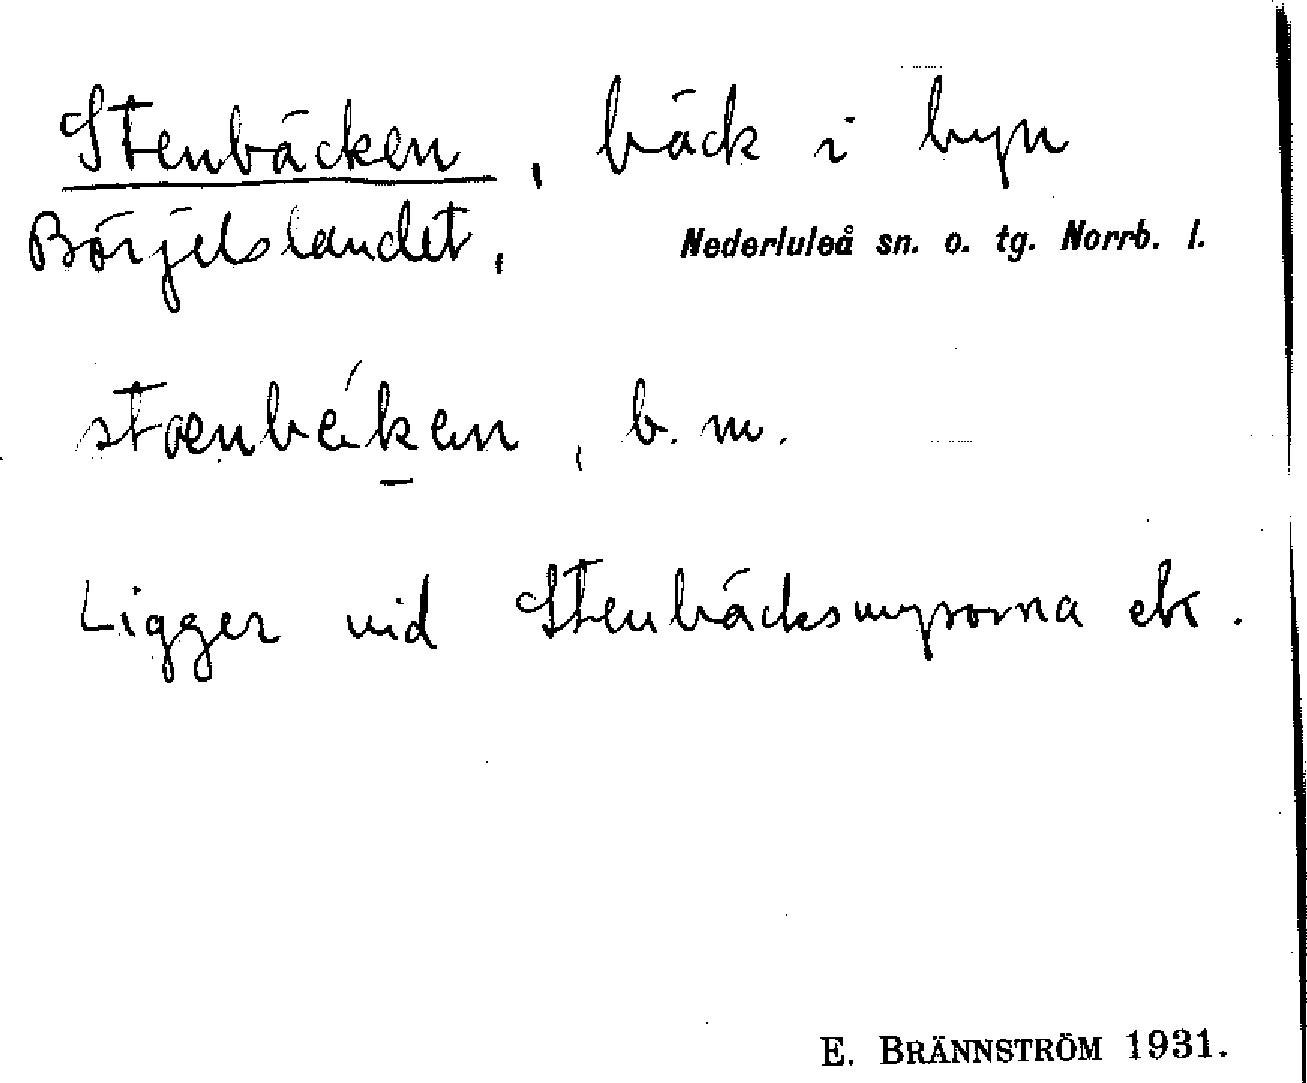 Stenbäcken, bäck i byn
Börjelslandet, Nederluleå sn. o. tg. Norrb. l.
stænbéken, b. m.
Ligger vid Stenbäcksmyrorna etc.
E. BRÄNNSTRÖM 1931.